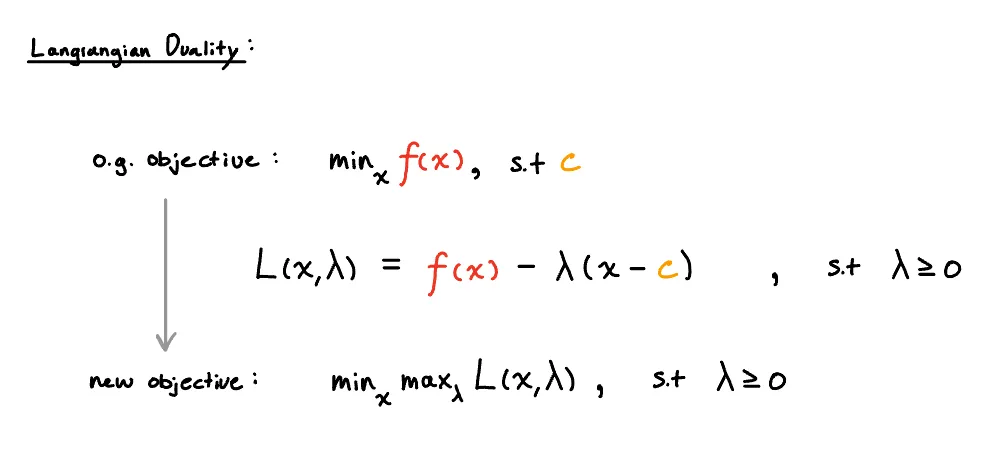 Langrangian Duality:
o.g. objective: min_x f(x), s.t c
L(x,λ) = f(x) - λ(x-c) , s.t λ≥0
new objective: min_x max_λ L(x,λ), s.t λ≥0